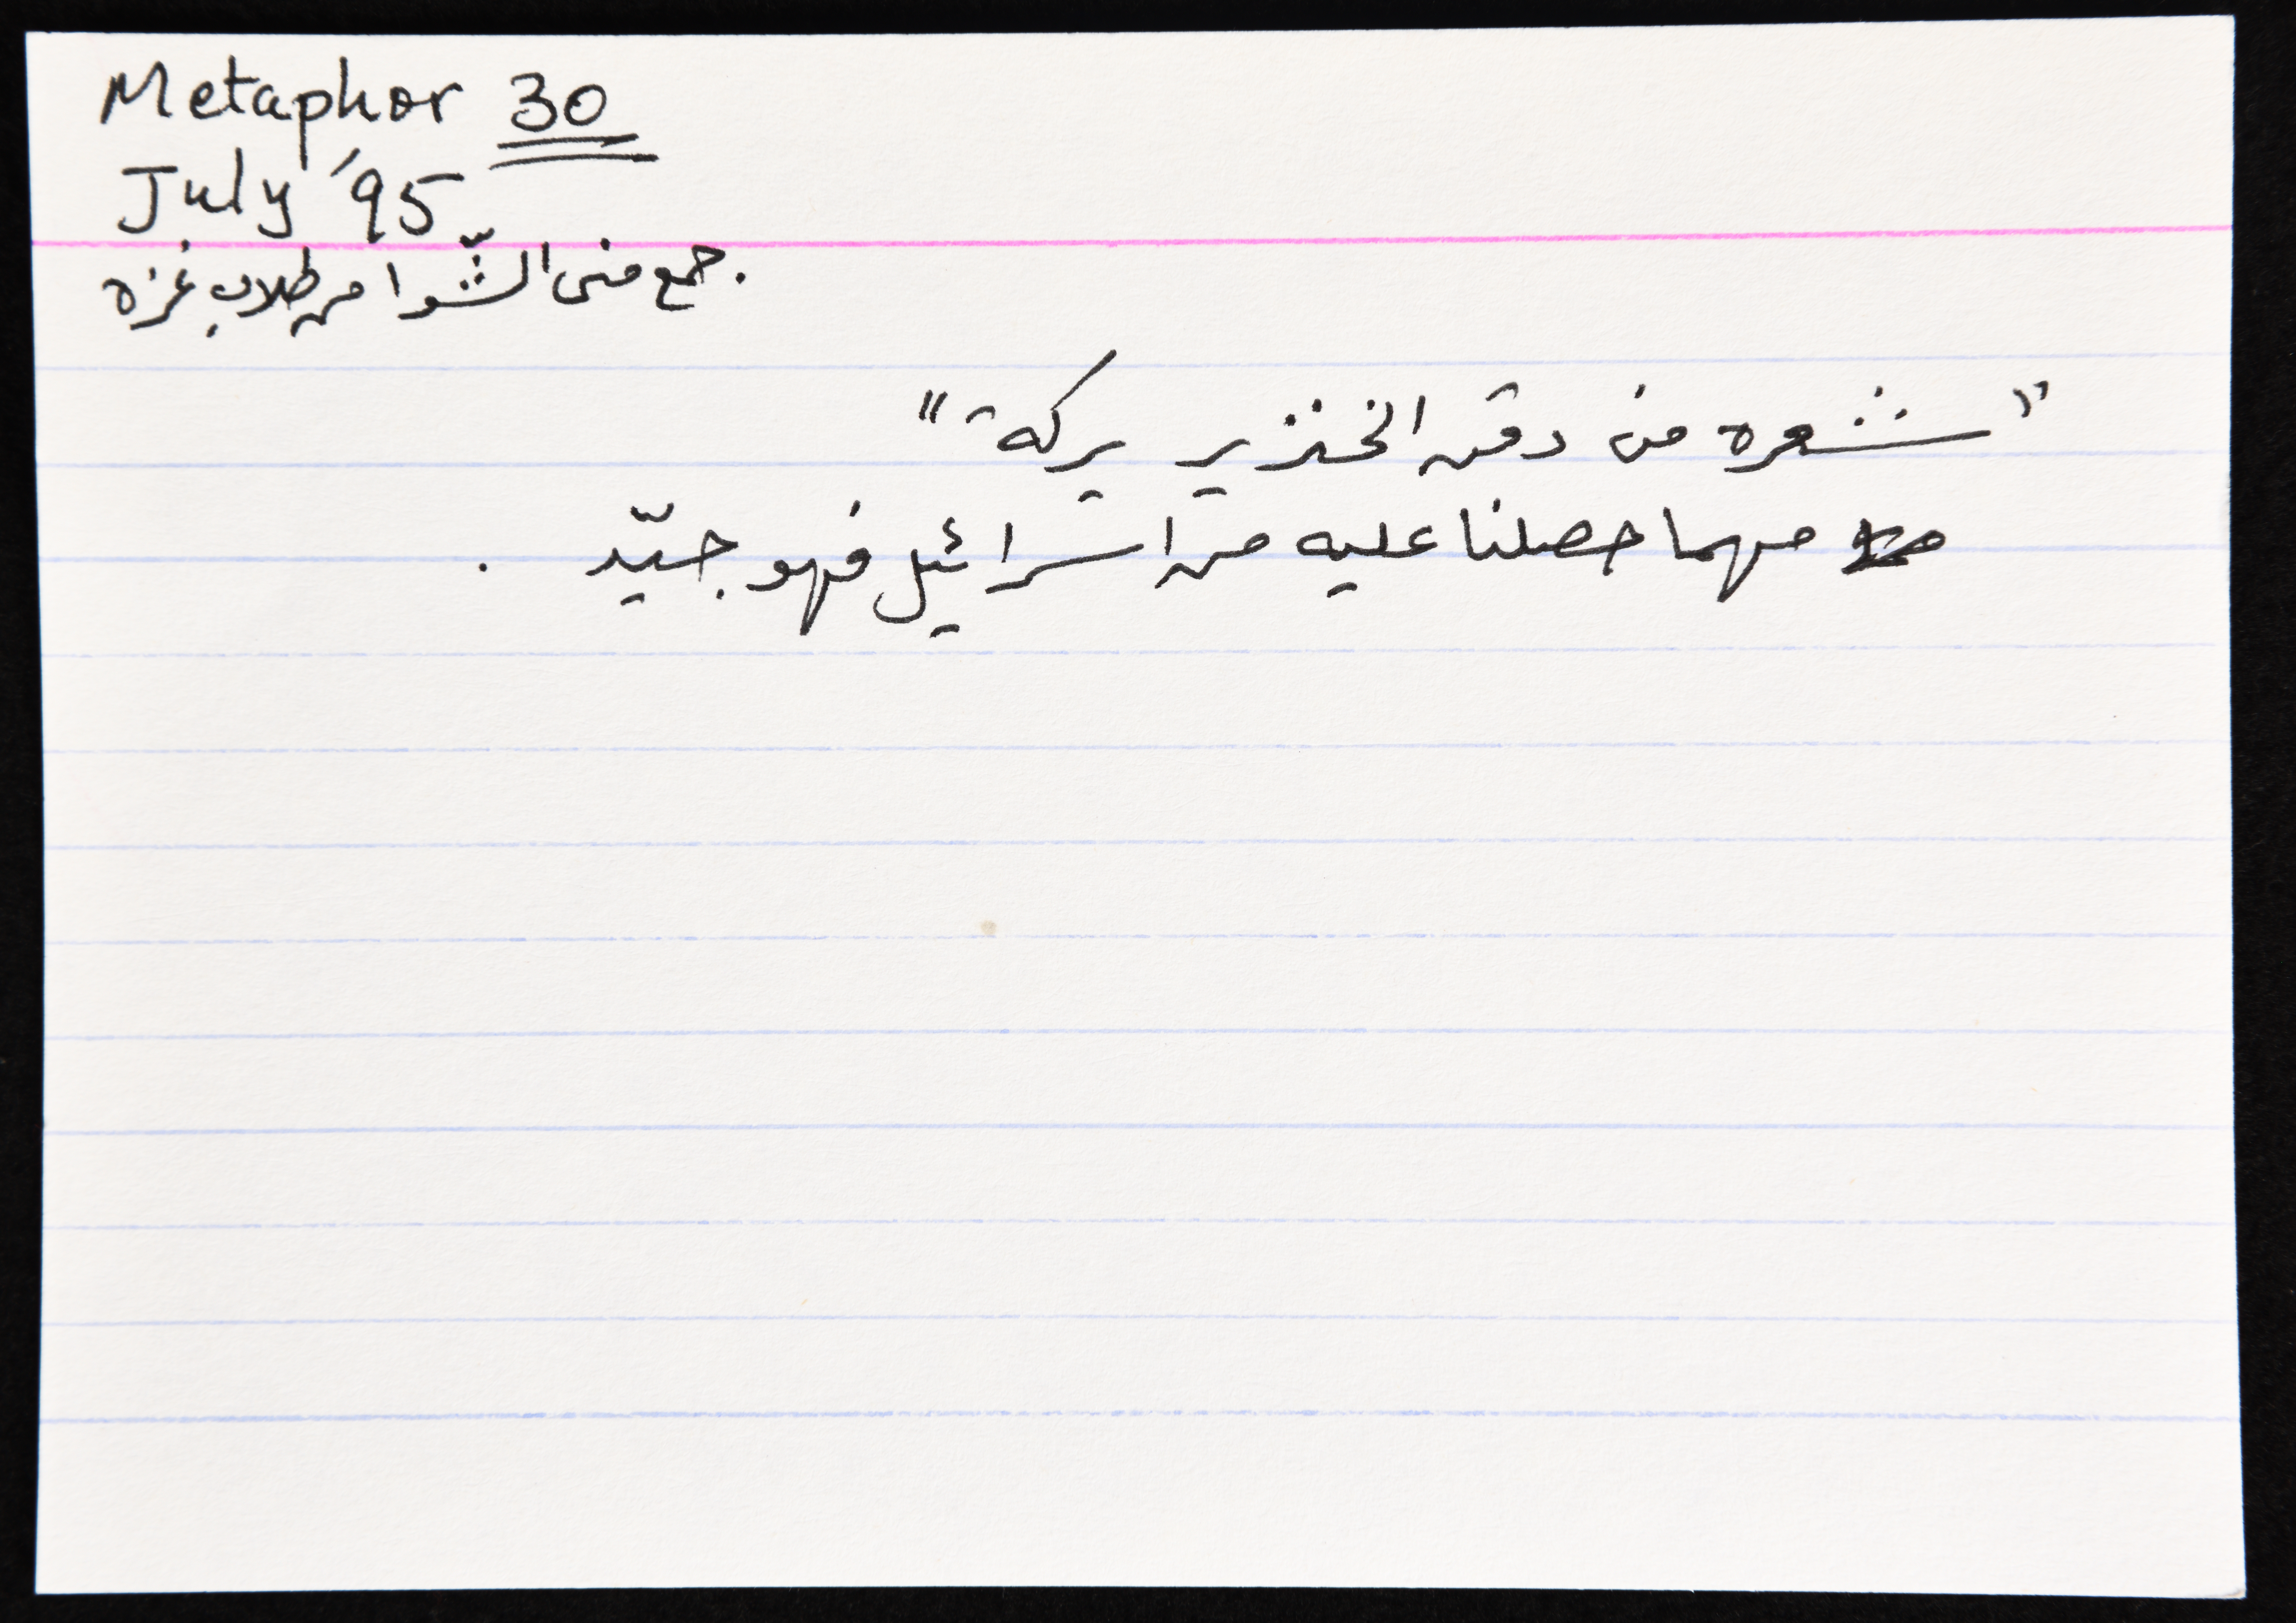 Metaphor 30
July '95
جمع منى الشّوا من طلاب غزه.
"شعره من دقن الخنزير بركة"
مهما حصلنا عليه من اسرائيل فهو جيّد .